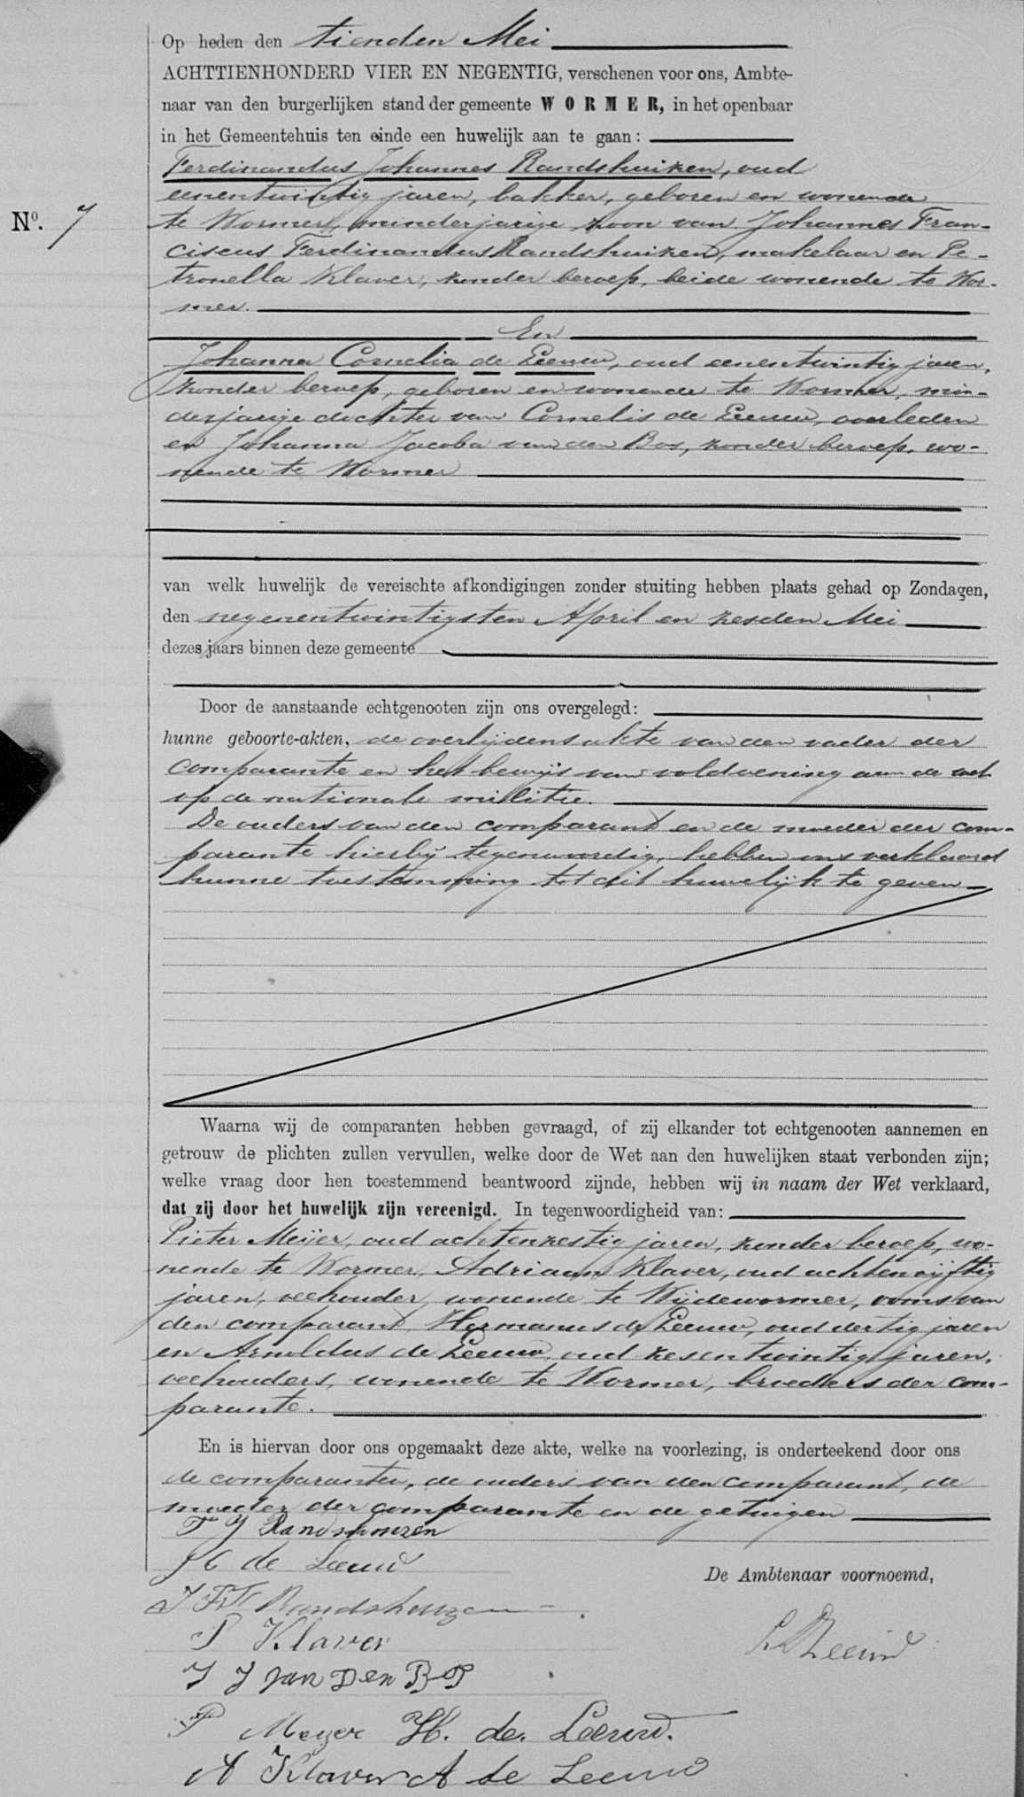 Op heden den tienden Mei
ACHTTIENHONDERD VIER EN NEGENTIG, verschenen voor ons, Ambte-
naar van den burgerlijken stand der gemeente WORMER, in het openbaar
in het Gemeentehuis ten einde een huwelijk aan te gaan:
Ferdinandus Johannes Randshuizen, oud
eenentwintig jaren, bakker, geboren en wonende
No. 7
te Wormer, minderjarige zoon van Johannes Fran-
ciscus Ferdinandus Randshuizen, makelaar en Pe-
tronella Klaver, zonder beroep, beide wonende te Wor-
mer.
En
Johanna Cornelia de Leeuw, oud eenentwintig jaren,
zonder beroep, geboren en wonende te Wormer, min-
derjarige dochter van Cornelis de Leeuw, overleden
en Johanna Jacoba van den Bos, zonder beroep, wo-
nende te Wormer
van welk huwelijk de vereischte afkondigingen zonder stuiting hebben plaats gehad op Zondagen,
den negenentwintigsten April en zesden Mei
dezes jaars binnen deze gemeente
Door de aanstaande echtgenooten zijn ons overgelegd:
hunne geboorte-akten, de overlijdensakte van den vader der
comparante en het bewijs van voldoening aan de wet
op de nationale militie.
De ouders van den comparant en de moeder der com-
parante hierbij tegenwoordig, hebben ons verklaard
hunne toestemming tot dit huwelijk te geven
Waarna wij de comparanten hebben gevraagd, of zij elkander tot echtgenooten aannemen en
getrouw de plichten zullen vervullen, welke door de Wet aan den huwelijken staat verbonden zijn;
welke vraag door hen toestemmend beantwoord zijnde, hebben wij in naam der Wet verklaard,
dat zij door het huwelijk zijn vereenigd. In tegenwoordigheid van:
Pieter Meijer, oud achtenzestig jaren, zonder beroep, wo-
nende te Wormer, Adriaan Klaver, oud achtenvijftig
jaren, veehouder, wonende te Wijdewormer, oom van
den comparant, Hermanus de Leeuw, oud dertig jaren
en Arnoldus de Leeuw, oud zesentwintig jaren,
veehouders, wonende te Wormer, broeders der com-
parante.
En is hiervan door ons opgemaakt deze akte, welke na voorlezing, is onderteekend door ons
de comparanten, de ouders van den comparant, de
moeder der comparante en de getuigen
F J Randshuizen
J C de Leeuw
De Ambtenaar voornoemd,
J F F Randshuizen
P Klaver
J J van Den Bos
P Meyer H. de Leeuw.
A Klaver A de Leeuw